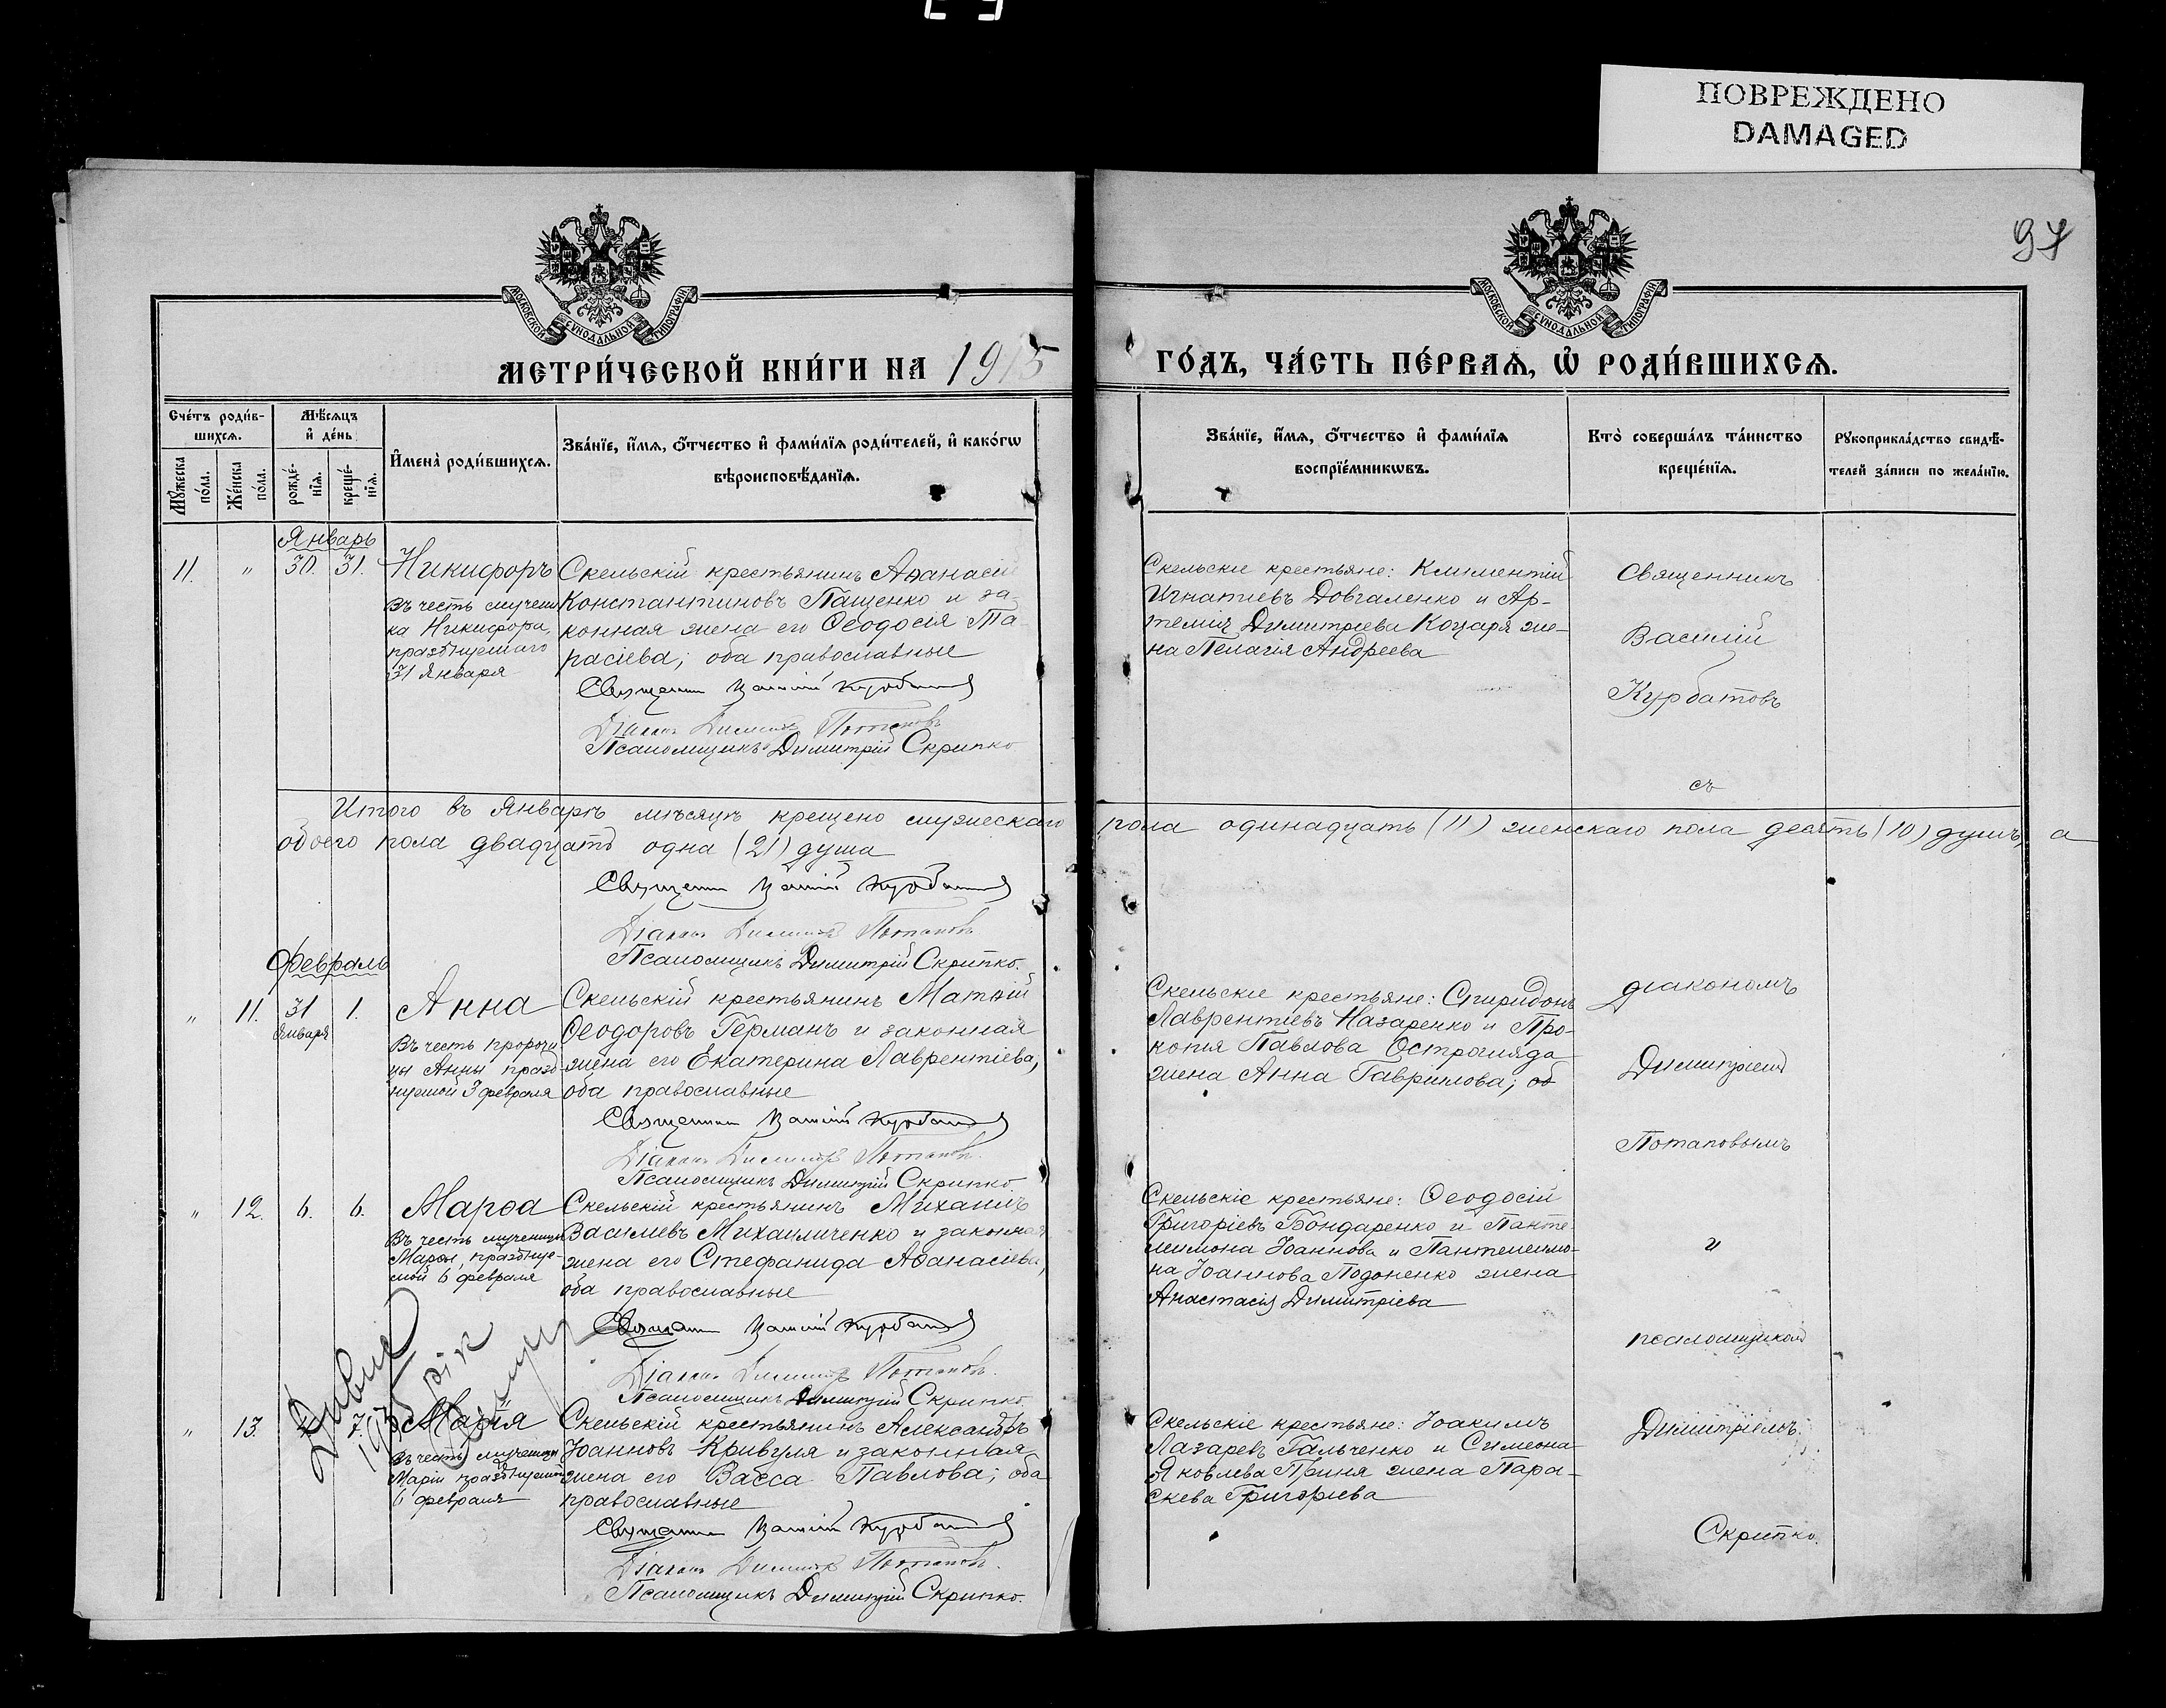 ПОВРЕЖДЕНО
DAMAGED
97
МОСКОВСКОЙ СѴНОДАЛЬНОЙ ТИПОГРАФІИ
МОСКОВСКОЙ СѴНОДАЛЬНОЙ ТИПОГРАФІИ
МЕТРИ́ЧЕСКОЙ КНИ́ГИ НА 1915
ГО́ДЪ, ЧА́СТЬ ПЕ́РВАѦ, Ѡ҆ РОДИ́ВШИХСѦ.
Сче́тъ роди́в-
шихсѧ.
Мѣ́сѧцъ
и҆ де́нь
Мꙋ́жеска
по́ла.
Же́нска
по́ла.
рожде́-
нїѧ.
креще́-
нїѧ.
И҆мена̀ роди́вшихсѧ.
Зва́нїе, и҆́мѧ, ѻ҆́тчество и҆ фами́лїѧ роди́телей, и҆ како́гѡ
вѣроисповѣ́данїѧ.
Зва́нїе, и҆́мѧ, ѻ҆́тчество и҆ фами́лїѧ
воспрїе́мникѡвъ.
Кто̀ соверша́лъ та́инство
креще́нїѧ.
Рꙋкоприкла́дство свидѣ́-
телей за́писи по жела́нїю.
Январь
11. " 30. 31. Никифоръ
Въ честь мучени
ка Никифора,
празднуемаго
31 Января
Скельскій крестьянинъ Аѳанасій
Константиновъ Пащенко и за-
конная жена его Ѳеодосія Та-
расіева; оба православные
Священник Василій Курбатов
Діакон Димитрій Потапов
Псаломщикъ Димитрій Скрипко
Скельскіе крестьяне: Климентій
Игнатіевъ Довгаленко и Ар-
темія Димитріева Коцаря же-
на Пелагія Андреева
Священникъ
Василій
Курбатовъ
съ
Итого въ Январѣ мѣсяцѣ крещено мужескаго пола одинадцать (11) женскаго пола десять (10) душъ, а
обоего пола двадцать одна (21) душа
Священник Василій Курбатов
Діакон Димитрій Потапов
Псаломщикъ Димитрій Скрипко.
Февраль
" 11. 31 1. Анна
Января
Въ честь пророчи
цы Анны празд-
нуемой 3 февраля
Скельскій крестьянинъ Матѳій
Ѳеодоровъ Германъ и законная
жена его Екатерина Лаврентіева,
оба православные
Священник Василій Курбатов
Діакон Димитрій Потапов.
Псаломщикъ Димитрій Скрипко
Скельскіе крестьяне: Спиридонъ
Лаврентіевъ Назаренко и Про-
копія Павлова Острогляда
жена Анна Гаврилова; об
діакономъ
Димитріем
Потаповымъ
" 12. 6. 6. Марѳа
Въ честь мученицы
Марѳы, празднуе-
мой 6 февраля
Скельскій крестьянинъ Михаилъ
Василіевъ Михаиличенко и законная
жена его Стефанида Аѳанасіева,
оба православные
Священник Василій Курбатов
Діакон Димитрій Потапов.
Псаломщикъ Димитрій Скрипко
Скельскіе крестьяне: Ѳеодосій
Григоріевъ Бондаренко и Панте-
леимона Іоаннова и Пантелеимо-
на Іоаннова Подоненко жена
Анастасія Димитріева
и
псаломщиком
" 13. 7. Марія
Въ честь мученицы
Маріи празднуемой
6 февраля
Скельскій крестьянинъ Александръ
Іоанновъ Кривуля и законная
жена его Васса Павлова; оба
православные
Священник Василій Курбатов
Діакон Димитрій Потапов.
Псаломщикъ Димитрій Скрипко.
Скельскіе крестьяне: Іоакимъ
Лазаревъ Гальченко и Симеона
Яковлева Приня жена Пара-
скева Григоріева
Димитріемъ
Скрипко.